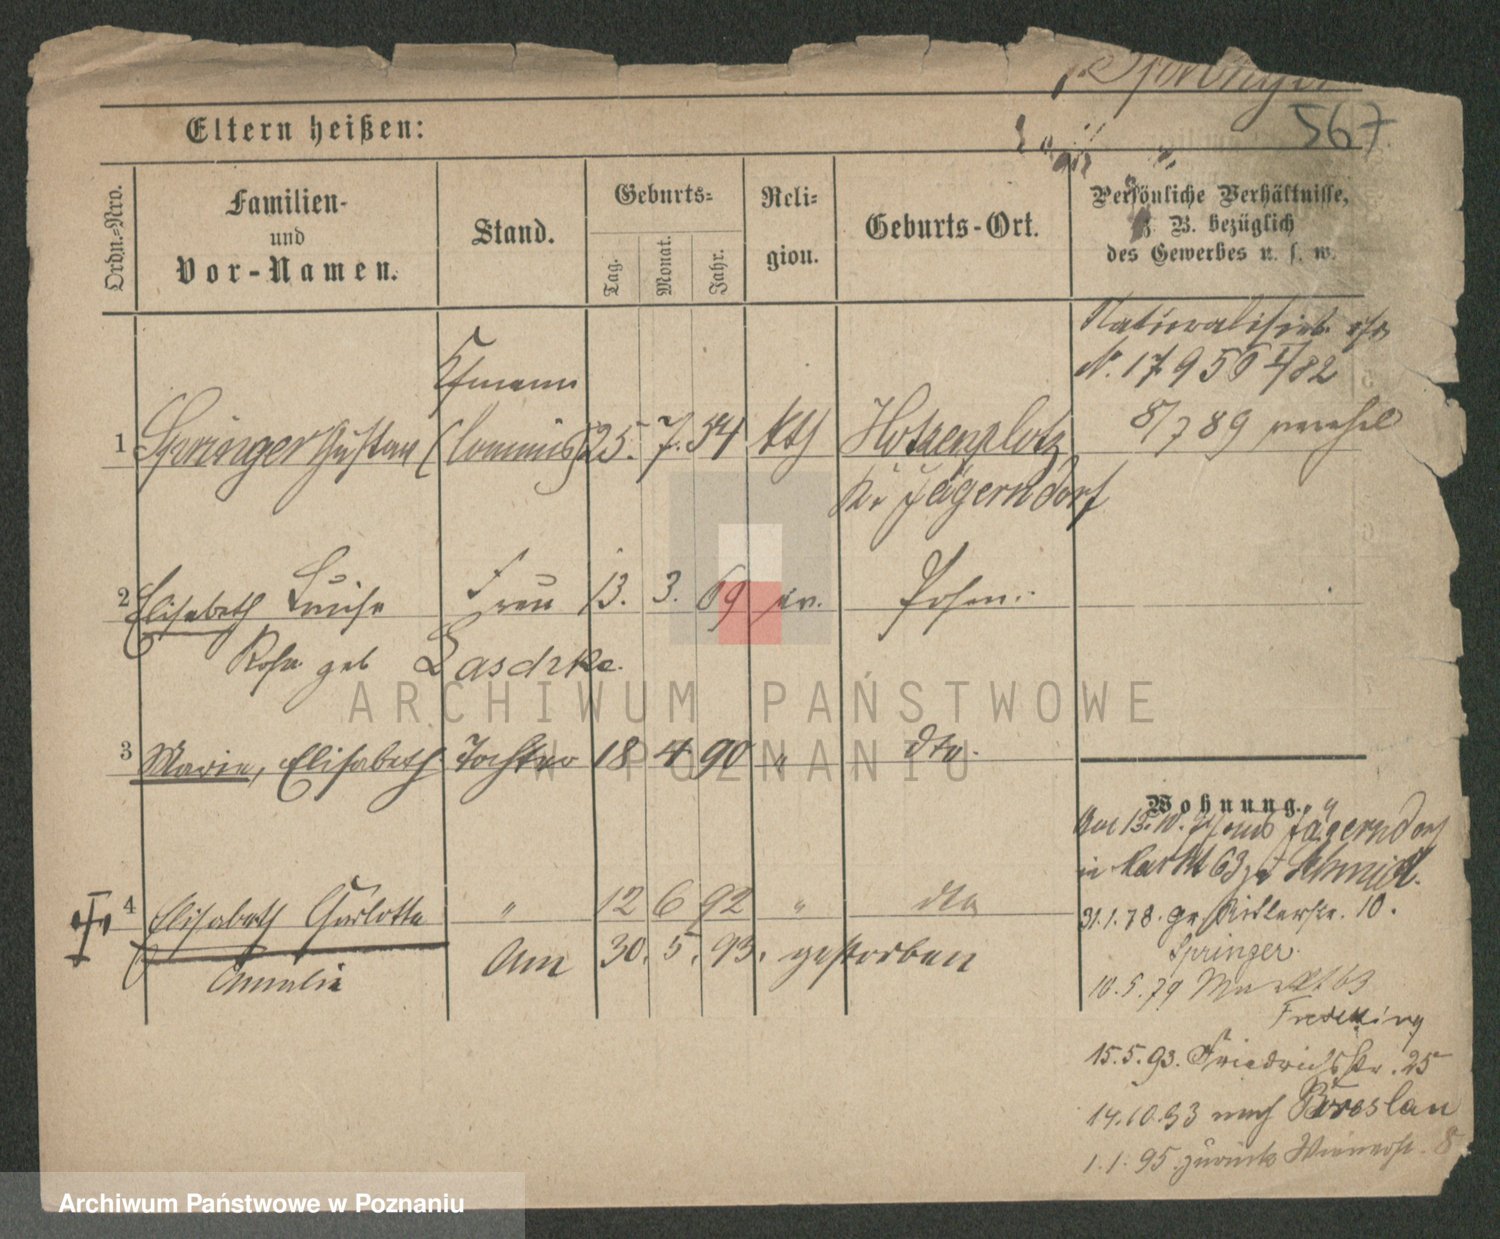 Springer
567
Eltern heißen:
Ordn.-Nro.
Familien-
und
Vor-Namen.
Stand.
Geburts-
Tag.
Monat.
Jahr.
Reli-
gion.
Geburts-Ort.
Persönliche Verhältnisse,
z. B. bezüglich
des Gewerbes u. s. w.
Naturalisirt
No. 17956 I/82
Kfmann
1 Springer Gustav (Commis) 25. 7. 54 kth Hotzenplotz
8/7 89
Kr Jägerndorf
2 Elisabeth Luise Frau 13. 3. 69 ev. Posen
Rosa geb Laschke
3 Marie, Elisabeth Tochter 18 4 90 " dto.
4 Elisabeth Charlotte " 12 6 92 " dto
Amalie Am 30. 5. 93. gestorben
Wohnung.
Am 13. 10. Jägerndorf
in Markt 63 Schmidt.
31.1.78. gr. Ritterstr. 10.
Springer.
10.5.79 Markt 63
15.5.93. Friedrichsstr. 25
14.10.93 nach Breslau
1.1.95 zurück Wienerstr. 8
ARCHIWUM PAŃSTWOWE
W POZNANIU
Archiwum Państwowe w Poznaniu